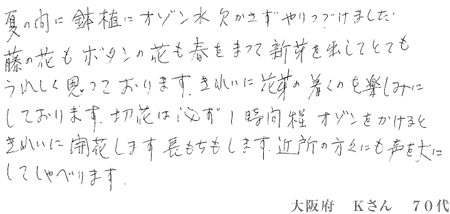 夏の間に鉢植にオゾン水欠かさずやりつづけました
藤の花もボタンの花も春をまって新芽を出してとても
うれしく思っております。きれいに花芽の着くのを楽しみに
しております。切花は必ず1時間程オゾンをかけると
きれいに開花します長もちもします。近所の方々にも声を大に
してしゃべります。
大阪府 Kさん 70代